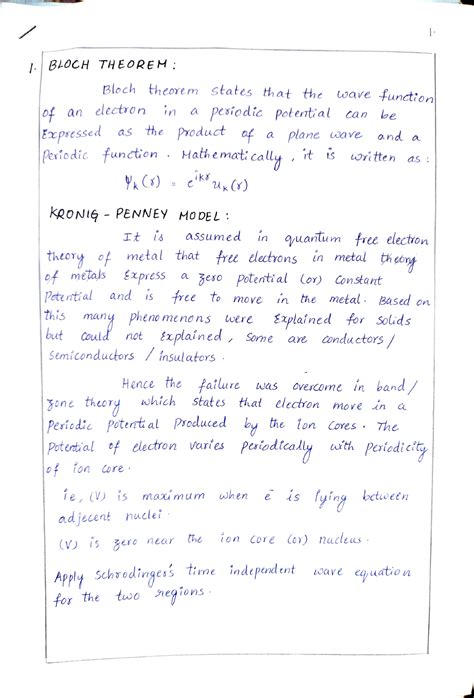 1.
1. BLOCH THEOREM :
Bloch theorem states that the wave function
of an electron in a periodic potential can be
Expressed as the product of a plane wave and a
Periodic function. Mathematically, it is written as :
Ψk(r) = e^ikr uk(r)
KRONIG - PENNEY MODEL :
It is assumed in quantum free electron
theory of metal that free electrons in metal theory
of metals Express a zero potential (or) constant
Potential and is free to move in the metal. Based on
this many phenomenons were Explained for solids
but could not Explained, some are conductors /
semiconductors / insulators.
Hence the failure was overcome in band /
zone theory which states that electron move in a
Periodic potential produced by the ion cores. The
Potential of electron varies periodically with periodicity
of ion core.
ie, (V) is maximum when e̅ is lying between
adjecent nuclei.
(V) is zero near the ion core (or) nucleus.
Apply Schrodinger's time independent wave equation
for the two regions.